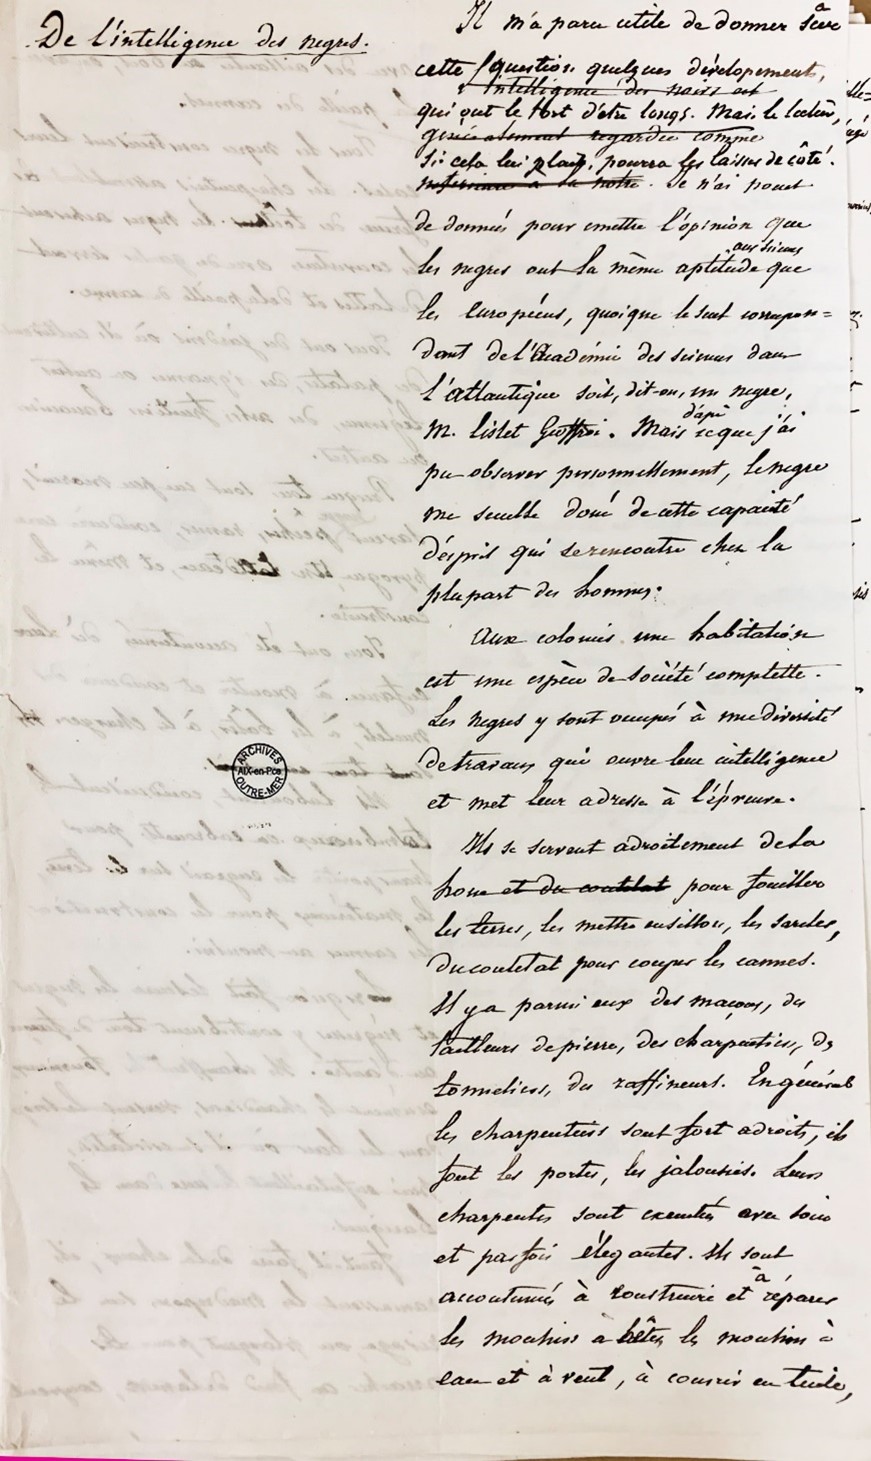 De l'intelligence des negres.
Il m'a paru utile de donner à
cette question quelques dévelopements,
l'intelligence des noirs est
qui ont le tort d'être longs. Mais le lecteur,
généralement regardée comme
si cela lui plaît, pourra les laisser de côté.
inférieure à la notre. Je n'ai point
de données pour emettre l'opinion que
aux sciences
les negres ont la même aptitude que
les Européens, quoique le seul correspon=
dant de l'Académie des sciences dans
l'atlantique soit, dit-on, un negre,
M. Lislet Geoffroi. Mais d'après ce que j'ai
pu observer personnellement, le negre
me semble doué de cette capacité
d'esprit qui se rencontre chez la
plupart des hommes.
Aux colonies une habitation
est une espèce de société complette.
Les negres y sont occupés à une diversité
de travaux qui ouvre leur intelligence
et met leur adresse à l'épreuve.
Ils se servent adroitement de la
houe et du coutelat pour fouiller
les terres, les mettre en sillon, les sarcler,
du coutelat pour couper les cannes.
Il y a parmi eux des maçons, des
tailleurs de pierre, des charpentiers, des
tonneliers, des raffineurs. En général
les charpentiers sont fort adroits, ils
font les portes, les jalousies. Leurs
charpentes sont executées avec soin
et parfois élégantes. Ils sont
accoutumés à construire et à réparer
les moulins a bêtes, les moulins à
eau et à vent, à couvrir en tuile,
ARCHIVES
AIX-en-Pce
OUTRE-MER